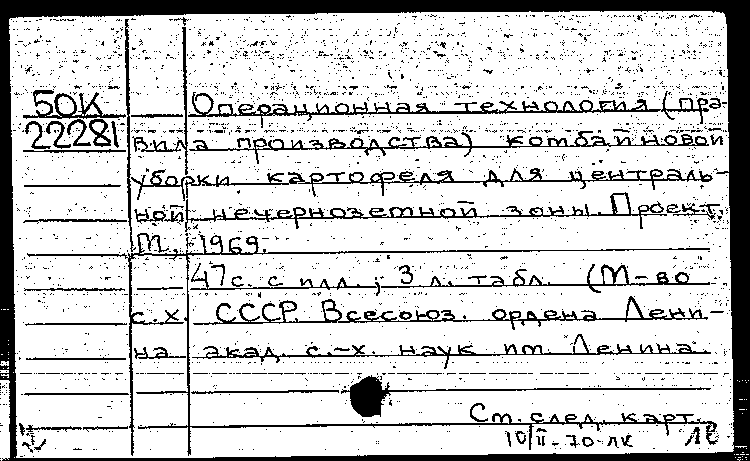 50К Операционная технология (пра-
22281 вила производства) комбайновой
уборки картофеля для централь-
ной нечерноземной зоны. Проект.
М., 1969.
47с. с илл.; 3 л. табл. (М-во
с.х. СССР. Всесоюз. ордена Лени-
на акад. с.-х. наук им. Ленина.
См. след. карт.
10/II-70-ЛК